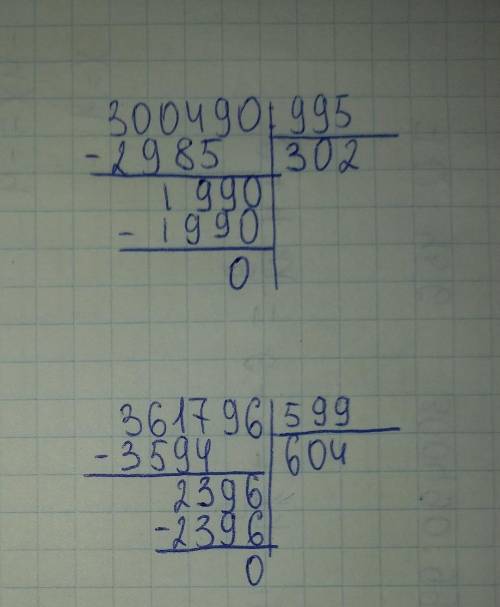 300490 995
-2985 302
1990
-1990
0
361796 599
-3594 604
2396
-2396
0